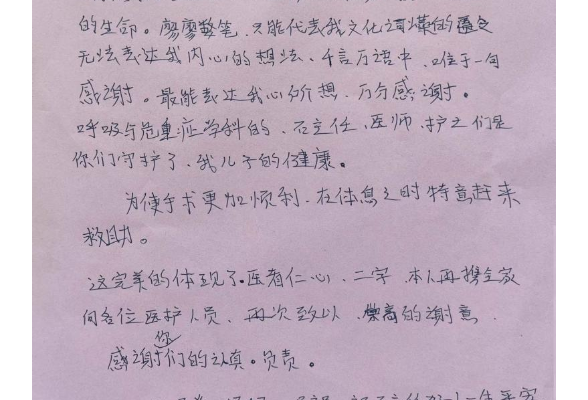 的生命。寥寥数笔，只能代表我文化的
无法表达我内心的想法、千言万语中，口位于一句
感谢。最能表达我心的想，万分感谢。
呼吸与危重症学科的、石主任、医师、护士们是
你们守护了、我儿子的健康。
为使手术更加顺利、在体息之时特意赶来
救助。
这完美的体现了医者仁心、二字、本人再携全家
向各位医护人员、再次致以、崇高的谢意、
感谢你们的认真。负责。